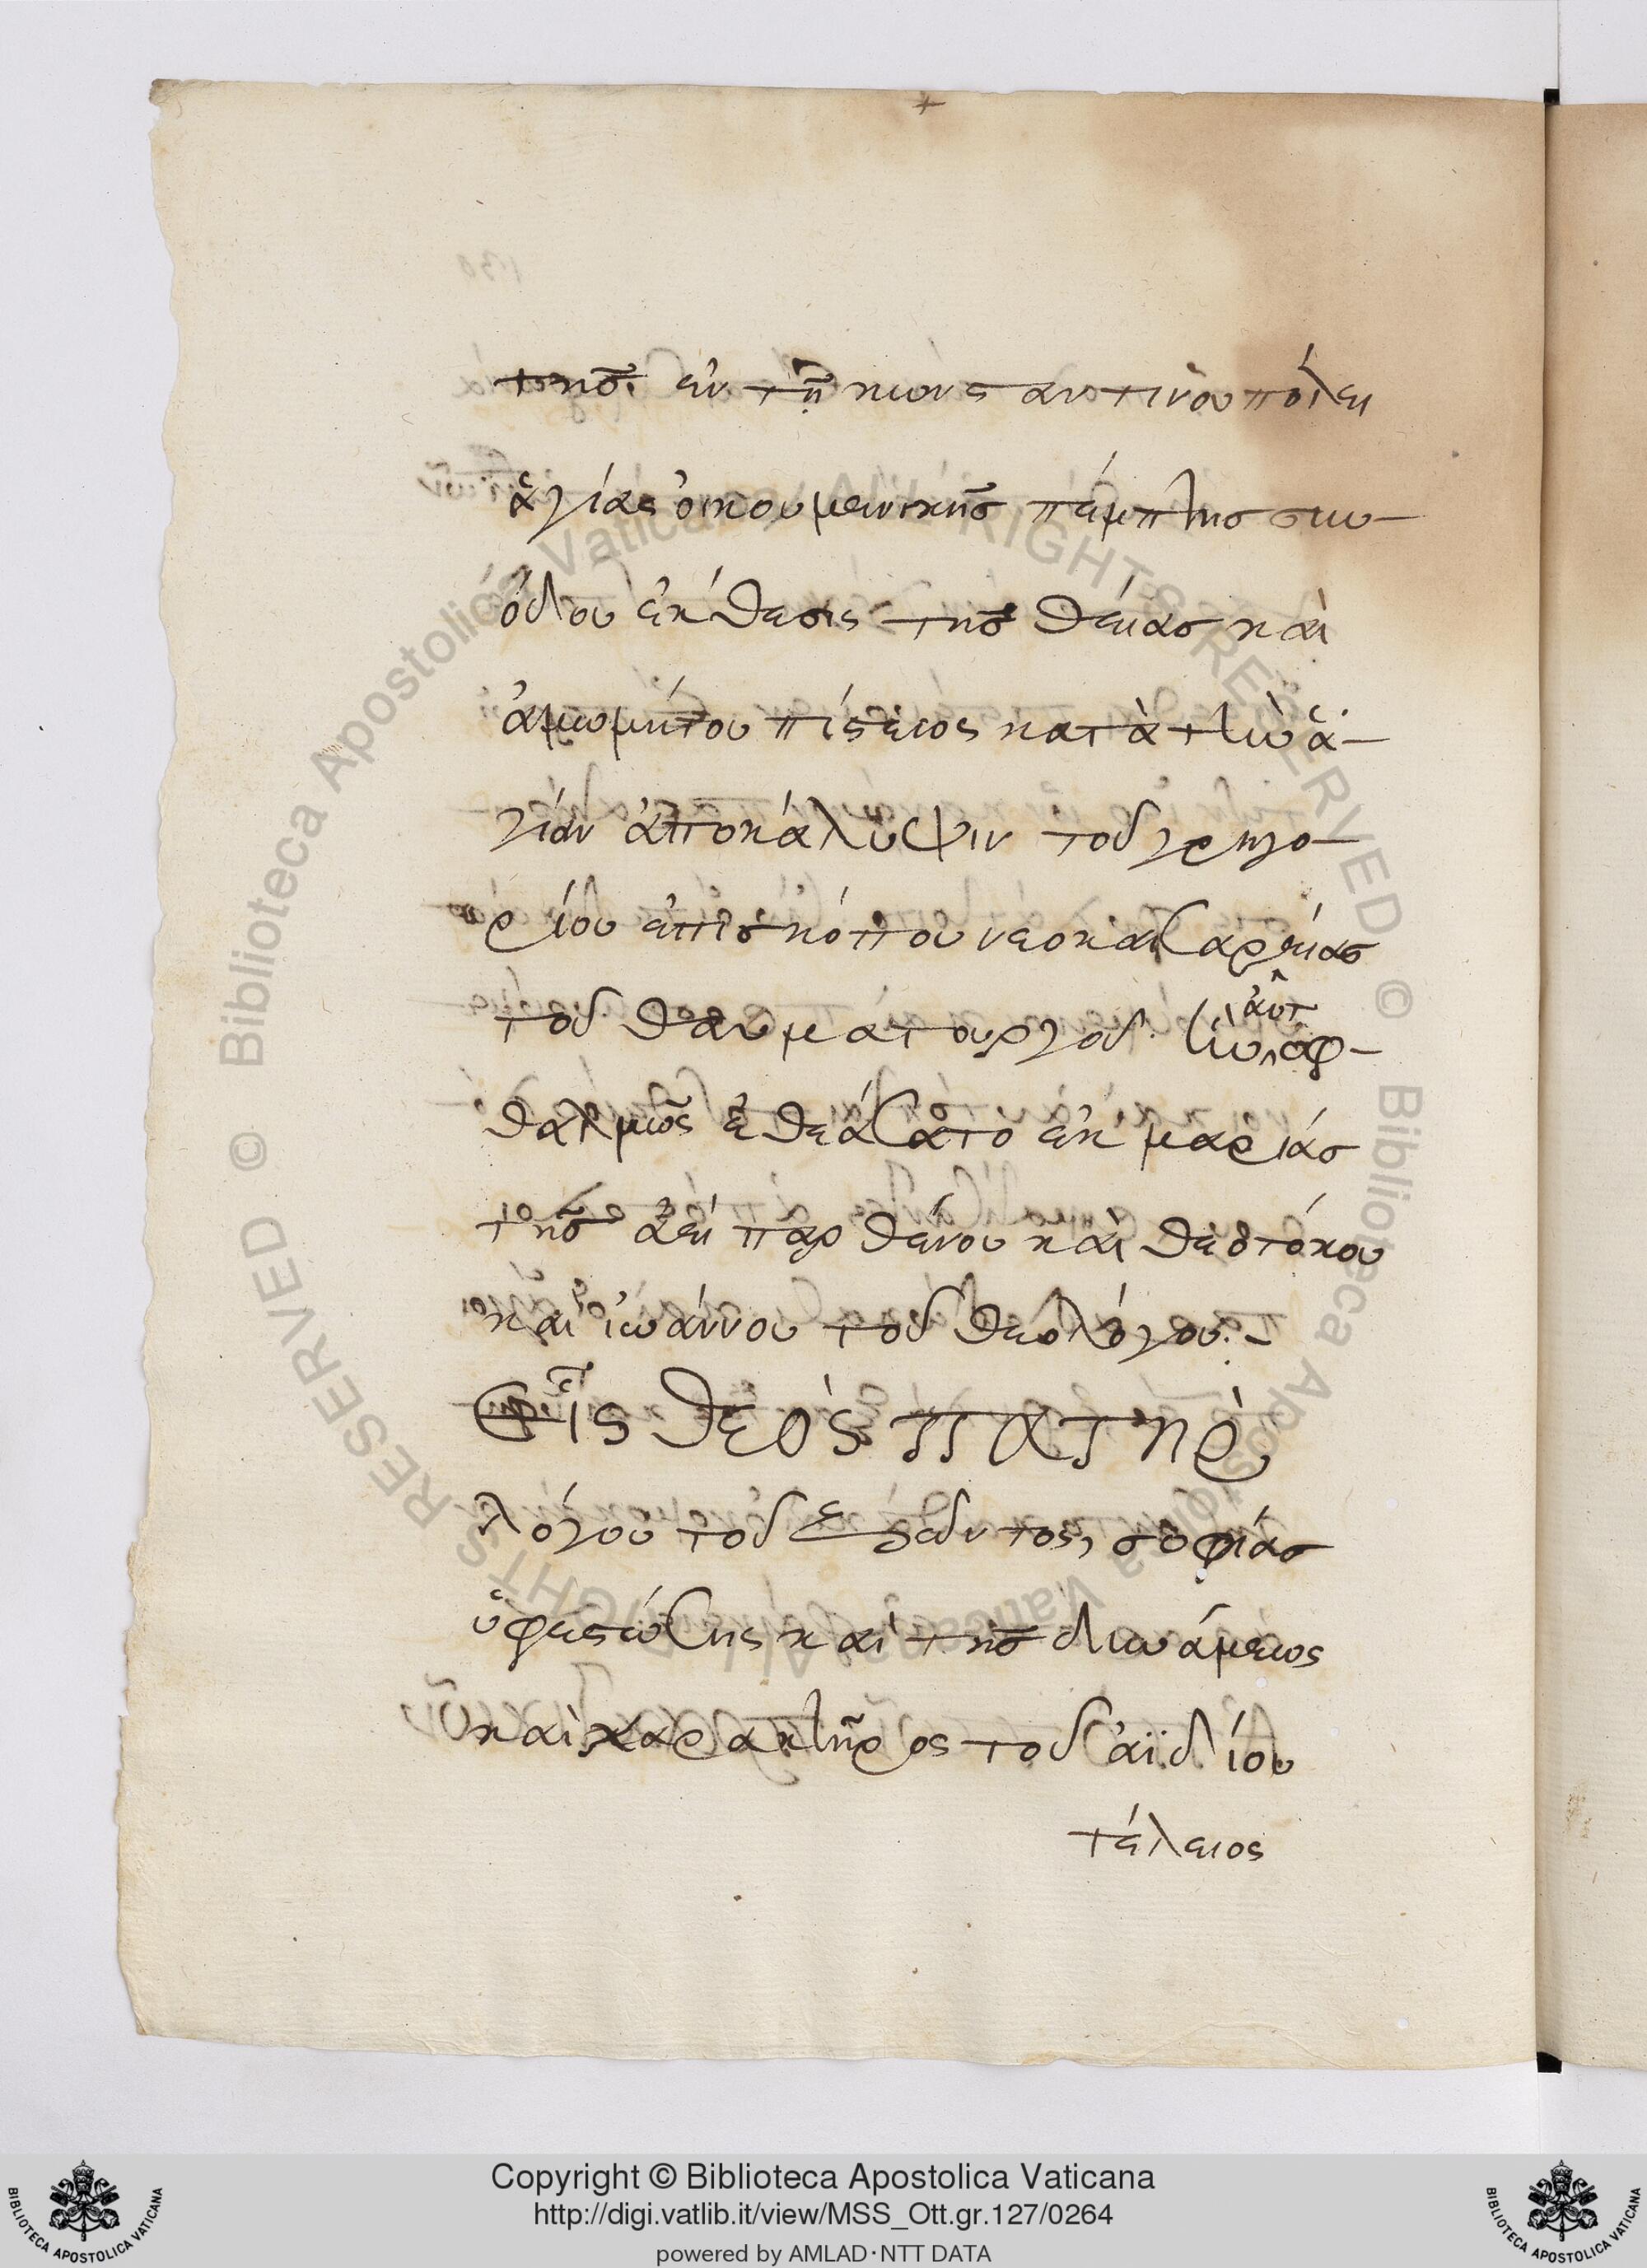 τῆς ἐν τῇ κωνσταντινουπόλει
ἁγίας οἰκουμενικῆς πέμπτης συν-
όδου ἔκθεσις τῆς θείας καὶ
ἀμωμήτου πίστεως κατὰ τὴν ἁ-
γίαν ἀποκάλυψιν τοῦ γρηγο-
ρίου ἐπισκόπου νεοκαισαρείας
τοῦ θαυματουργοῦ. ἣν αὐτ
οφ-
θαλμῶς ἐθεάσατο ἐκ μαρίας
τῆς ἀεὶ παρθένου καὶ θεοτόκου
καὶ ἰωάννου τοῦ θεολόγου.-
Εἷς θεὸς πατὴρ
λόγου τοῦ ζῶντος, σοφίας
ὑφεστώσης καὶ τῆς δυνάμεως
καὶ χαρακτῆρος τοῦ ἀϊδίου
τέλειος
Biblioteca Apostolica Vaticana © ALL RIGHTS RESERVED © Biblioteca Apostolica Vaticana ALL RIGHTS RESERVED ©
Copyright © Biblioteca Apostolica Vaticana
http://digi.vatlib.it/view/MSS_Ott.gr.127/0264
powered by AMLAD·NTT DATA
BIBLIOTECA APOSTOLICA VATICANA
BIBLIOTECA APOSTOLICA VATICANA